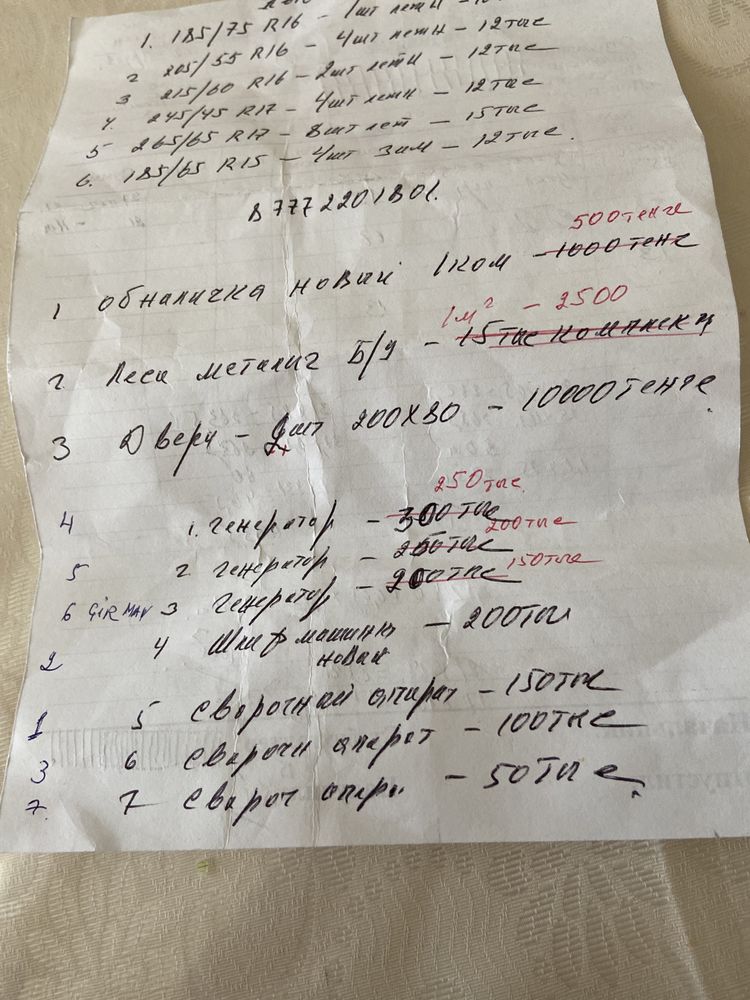 1. 185/75 R16 – 1шт летн –
2 205/55 R16 – 4шт летн – 12тыс
3 215/60 R16 – 2шт летн – 12тыс
4. 245/45 R17 – 4шт летн – 12тыс
5 265/65 R17 – 8шт лет – 15тыс
6. 185/65 R15 – 4шт зим – 12тыс.
87772201801.
500тенге
1 обналичка новый 1ком – 1000тенг
1м² – 2500
2. Леса металиг Б/у – 15тыс комплект
3 Двери – 2шт 200х80 – 10000тенге
250тыс
4 1. генератор – 300тыс
200тыс
5 2 генератор – 250тыс
150тыс
6 GIRMAN 3 генератор – 200тыс
2 4 Шлиф машинка новая – 200тыс
1 5 сворочный апарат – 150тыс
3 6 сворочн апарат – 100тыс
7. 7 свароч апар – 50тыс